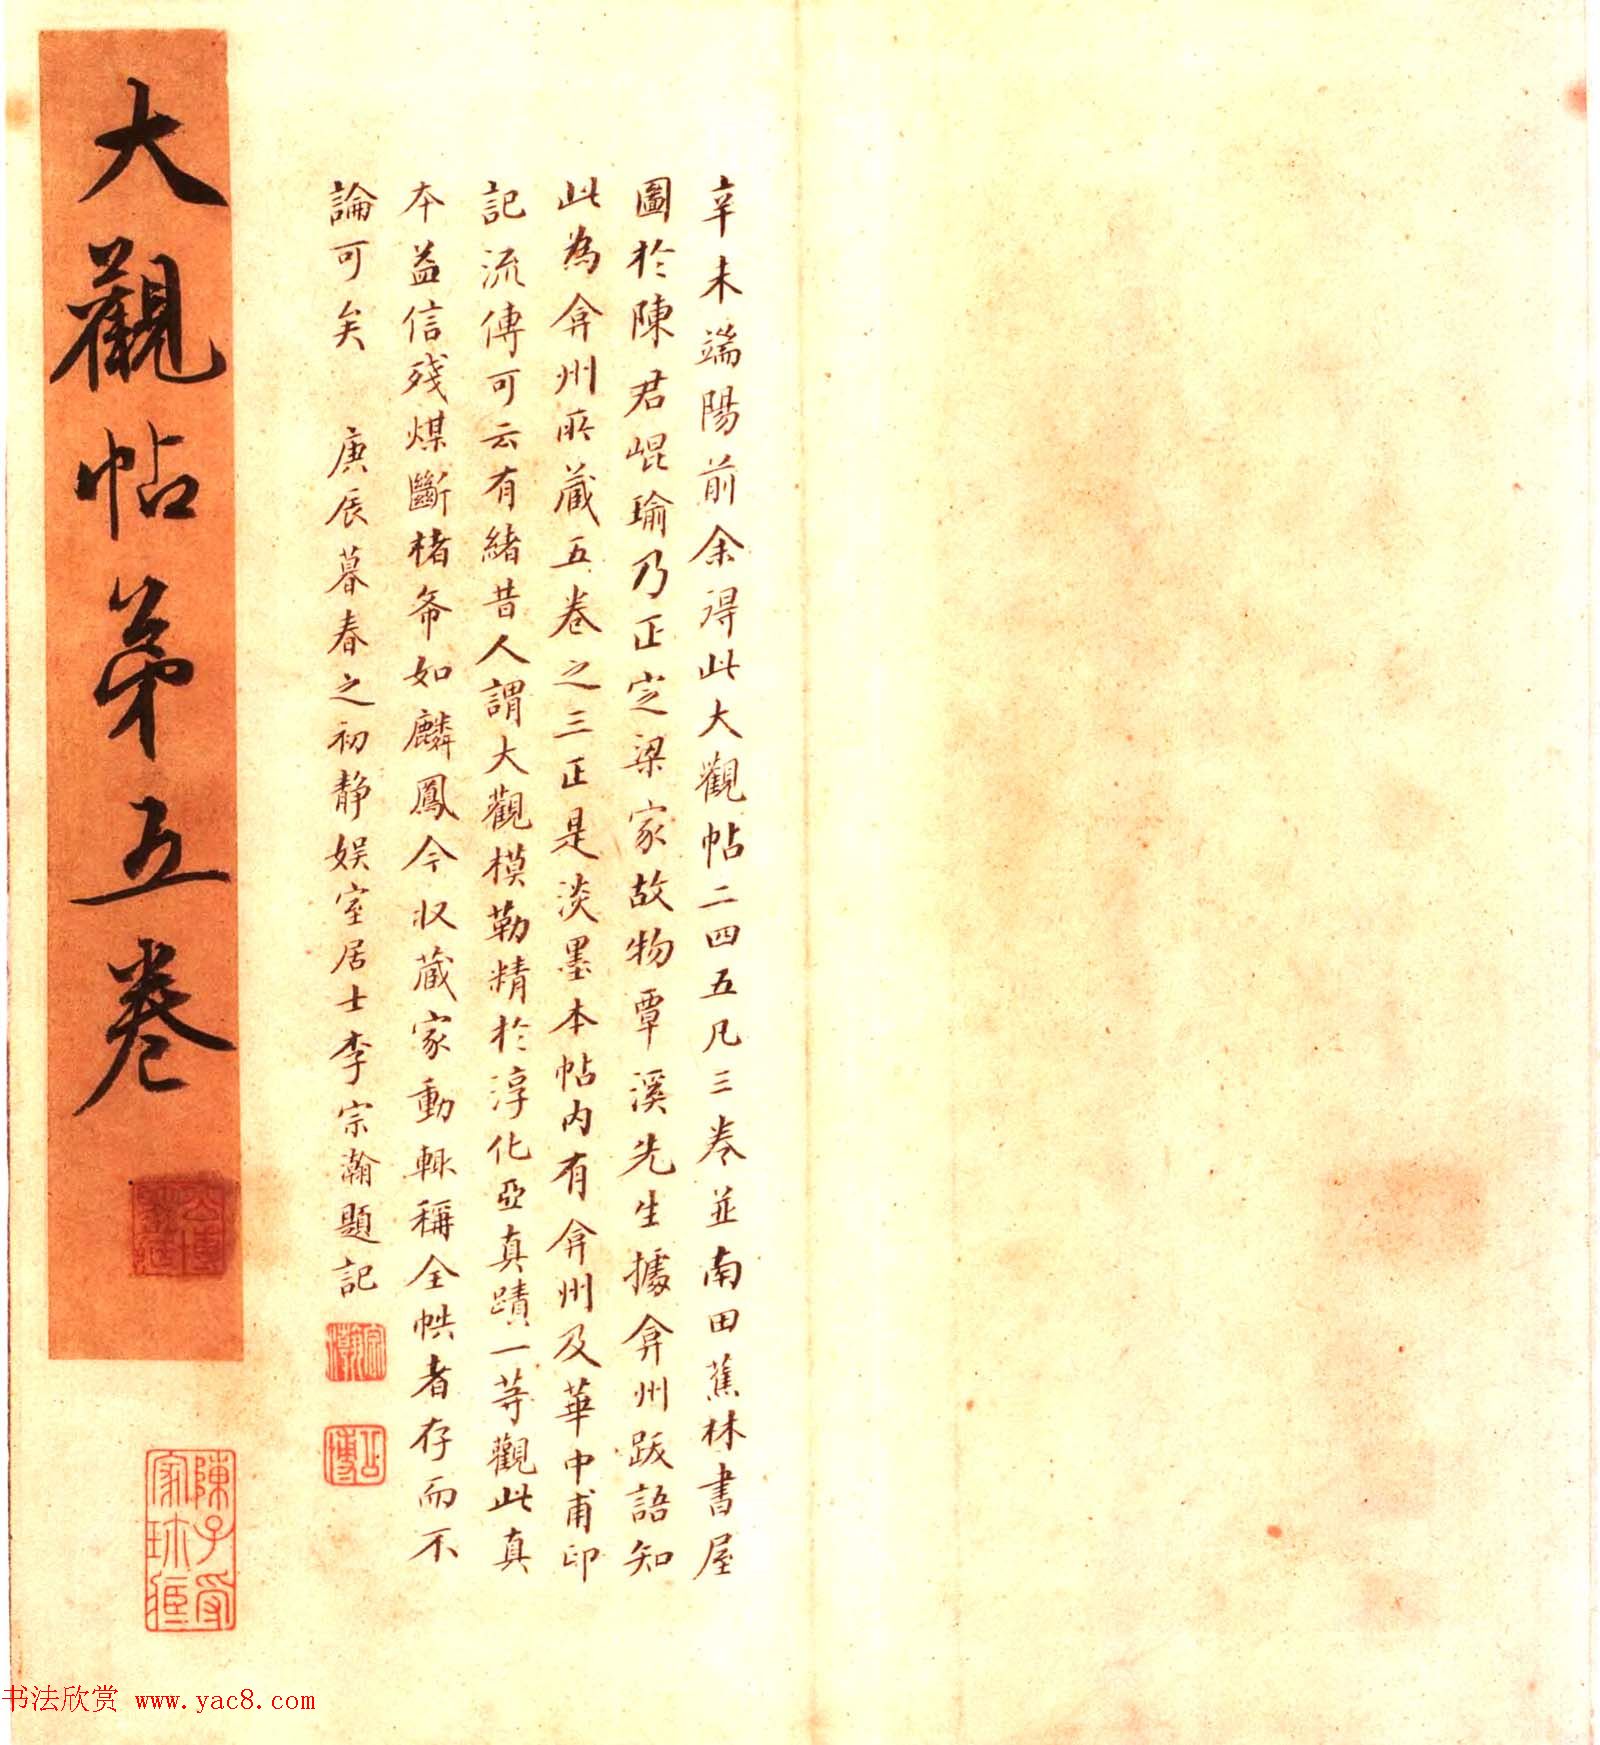 辛未端陽前余得此大觀帖二四五凡三卷並南田蕉林書屋
圖於陳君崐瑜乃正定梁家故物覃溪先生據弇州跋語知
此為弇州所藏五卷之三正是淡墨本帖內有弇州及華中甫印
記流傳可云有緒昔人謂大觀模勒精於淳化亞真蹟一等觀此真
本益信殘煤斷楮希如麟鳳今收藏家動輒稱全帙者存而不
論可矣 庚辰暮春之初靜娛室居士李宗瀚題記
宗瀚
公博
大觀帖第五卷
陳子受
家珍藏
书法欣赏 www.yac8.com